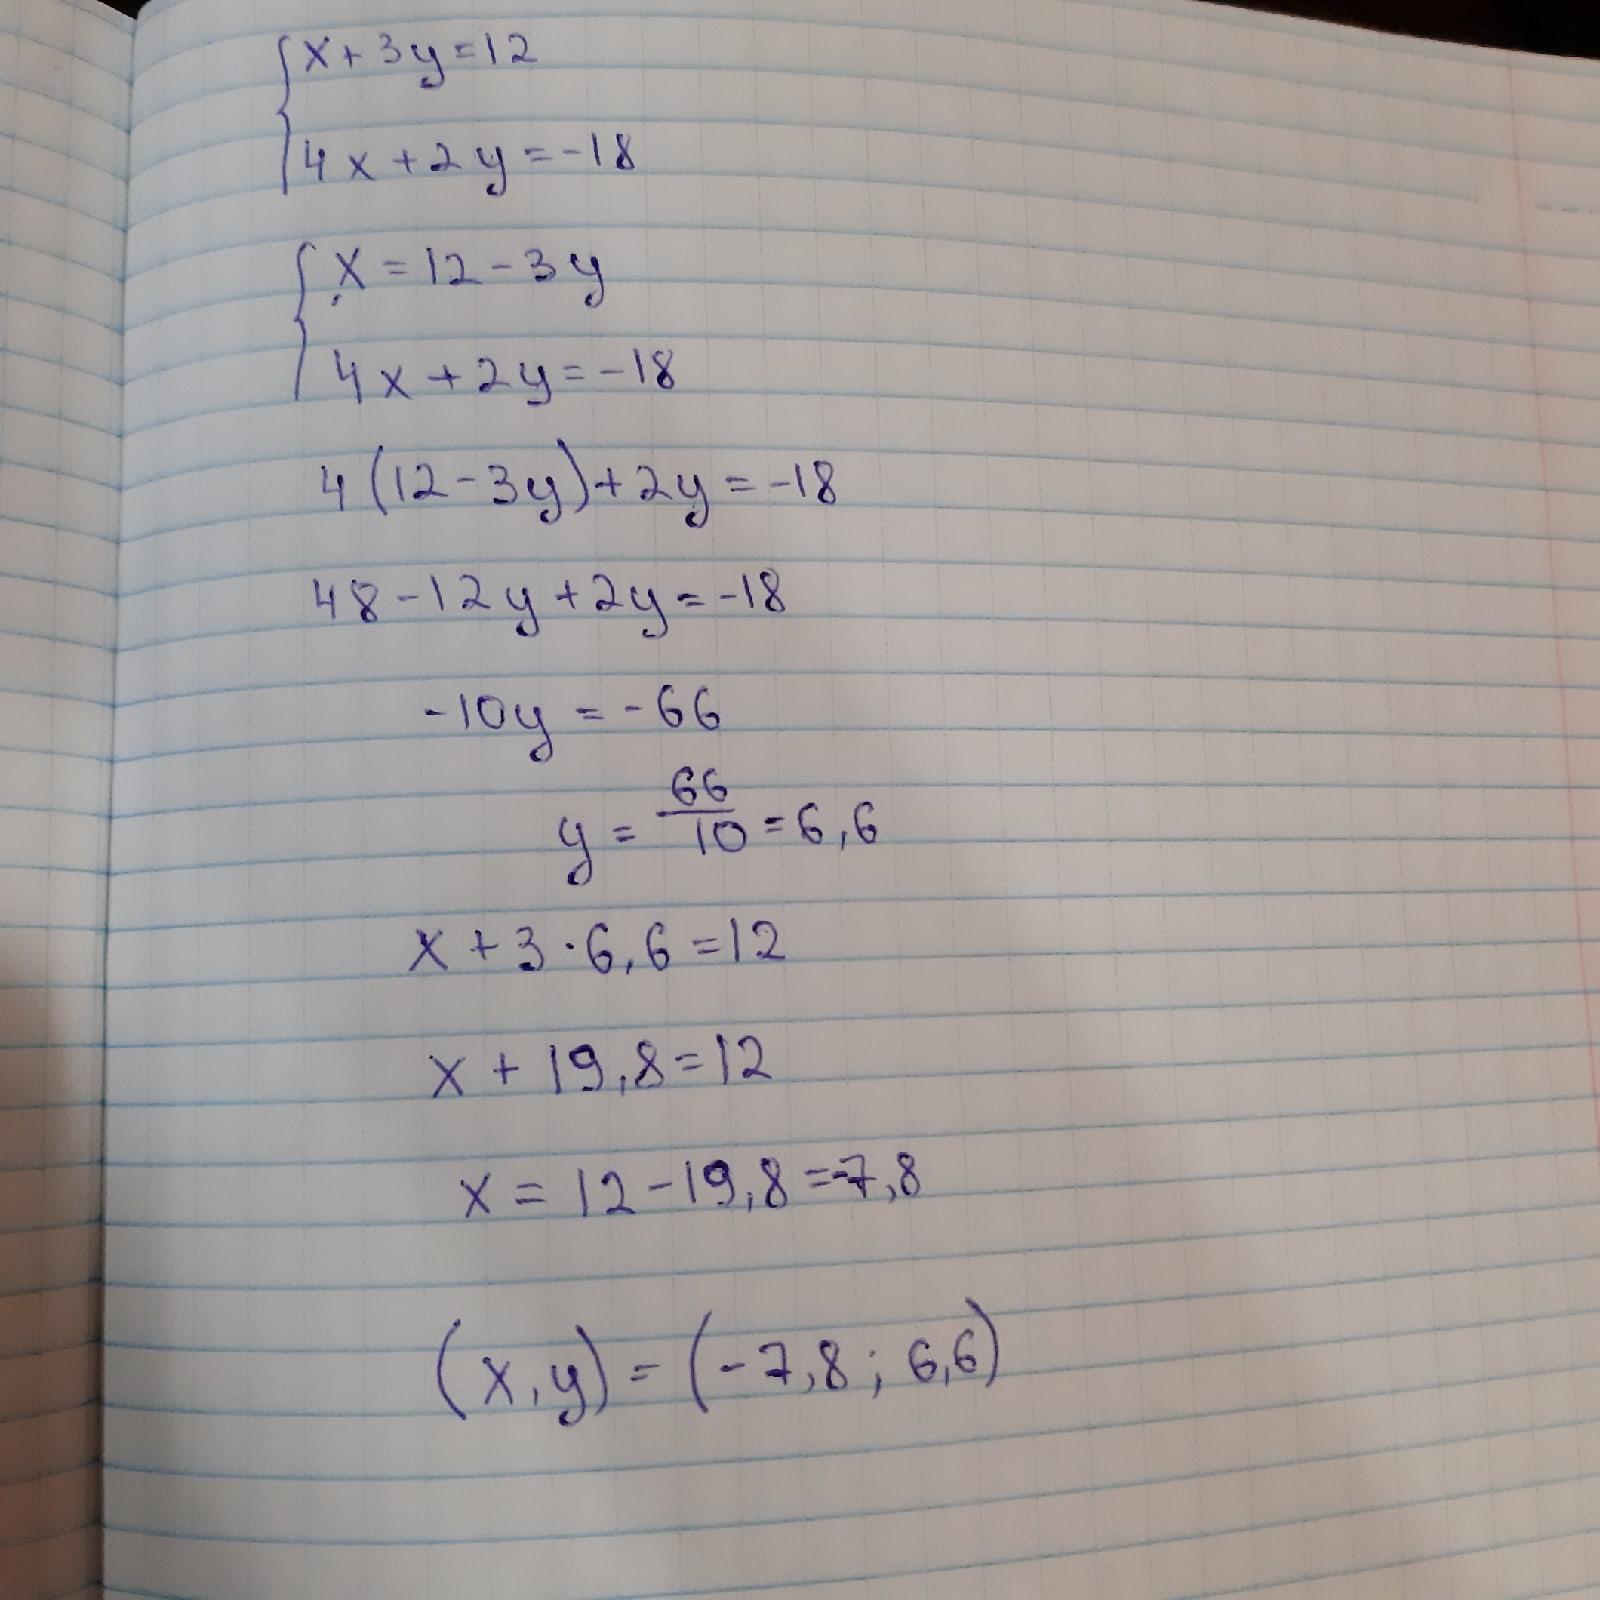 {x+3y=12
4x+2y=-18
{x=12-3y
4x+2y=-18
4(12-3y)+2y=-18
48-12y+2y=-18
-10y=-66
y=66/10=6,6
x+3·6,6=12
x+19,8=12
x=12-19,8=-7,8
(x,y)=(-7,8; 6,6)